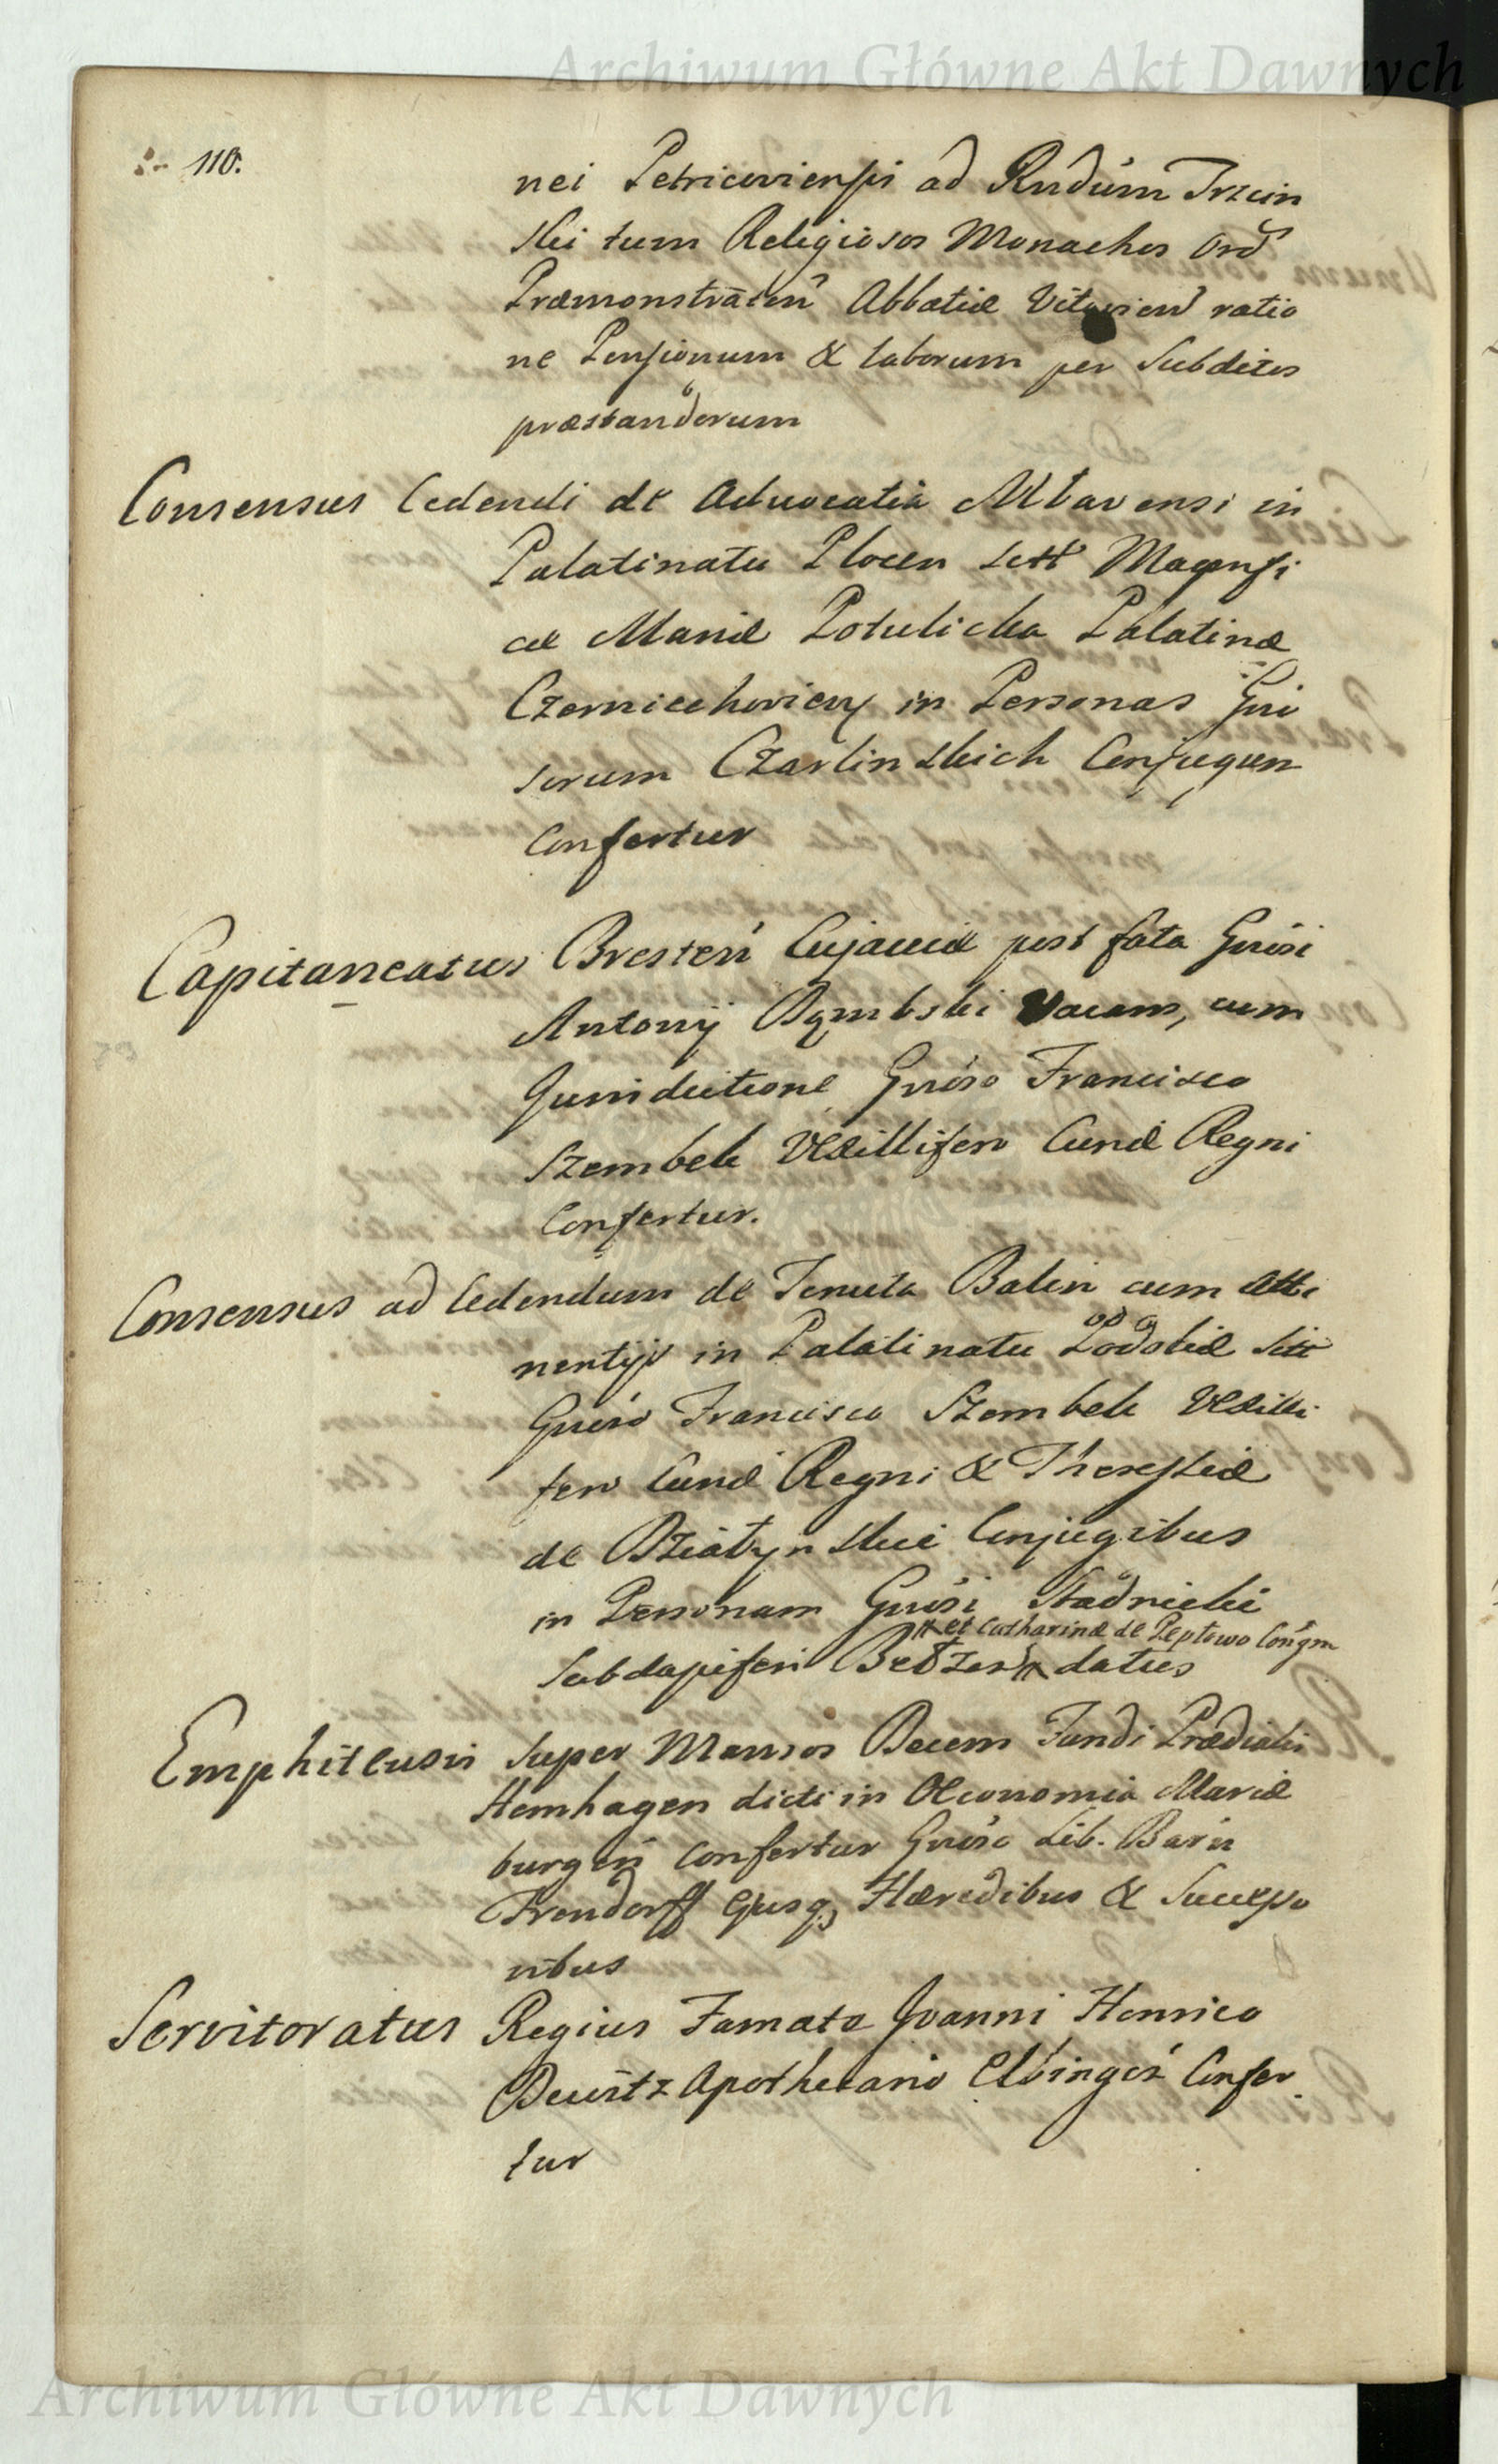 Archiwum Główne Akt Dawnych
110.
nei Petricoviensi ad Rudum Trzcin
ski tum Religiosos Monachos Ord
Præmonstraten Abbatiæ Vitovien ratio
ne Pensionum & laborum per Subditos
præstandorum
Consensus Cedendi de Advocatia Mlavensi in
Palatinatu Plocen
cæ Mariæ Potulicka Palatinæ
Czerniechovien in Personas Gno
sorum Czarlinskich Conjugum
Confertur
Capitaneatus Bresten Cujaviæ post fata Gnosi
Antonij Dąmbski Vacans, cum
Jurisdictione Gnoso Francisco
Szembek Vexillifero Curiæ Regni
Confertur.
Consensus ad Cedendum de Tenuta Balin cum Atti
nentijs in Palatinatu Podoliæ
Gnoso Francisco Szembek Vexilli
fero Curiæ Regni & Theressiæ
de Dziatynskie Conjugibus
in Personam Gnosi Stadnicki
et Catharinæ de Peptowo
Subdapiferi Betzen datus
Emphiteusis Super Mansos Decem Fundi Prædialis
Hemhagen dicti in Oeconomia Mariæ
burgen Confertur Gnoso Lib. Baro
Trendorff Ejusq Hæredibus & Successo
ribus
Servitoratus Regius Famato Joanni Henrico
Apothecario Elbingen Confer
tur
Archiwum Główne Akt Dawnych